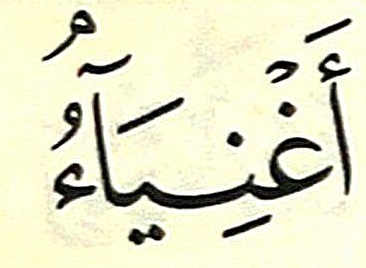 أَغْنِيَآءُ ۘ